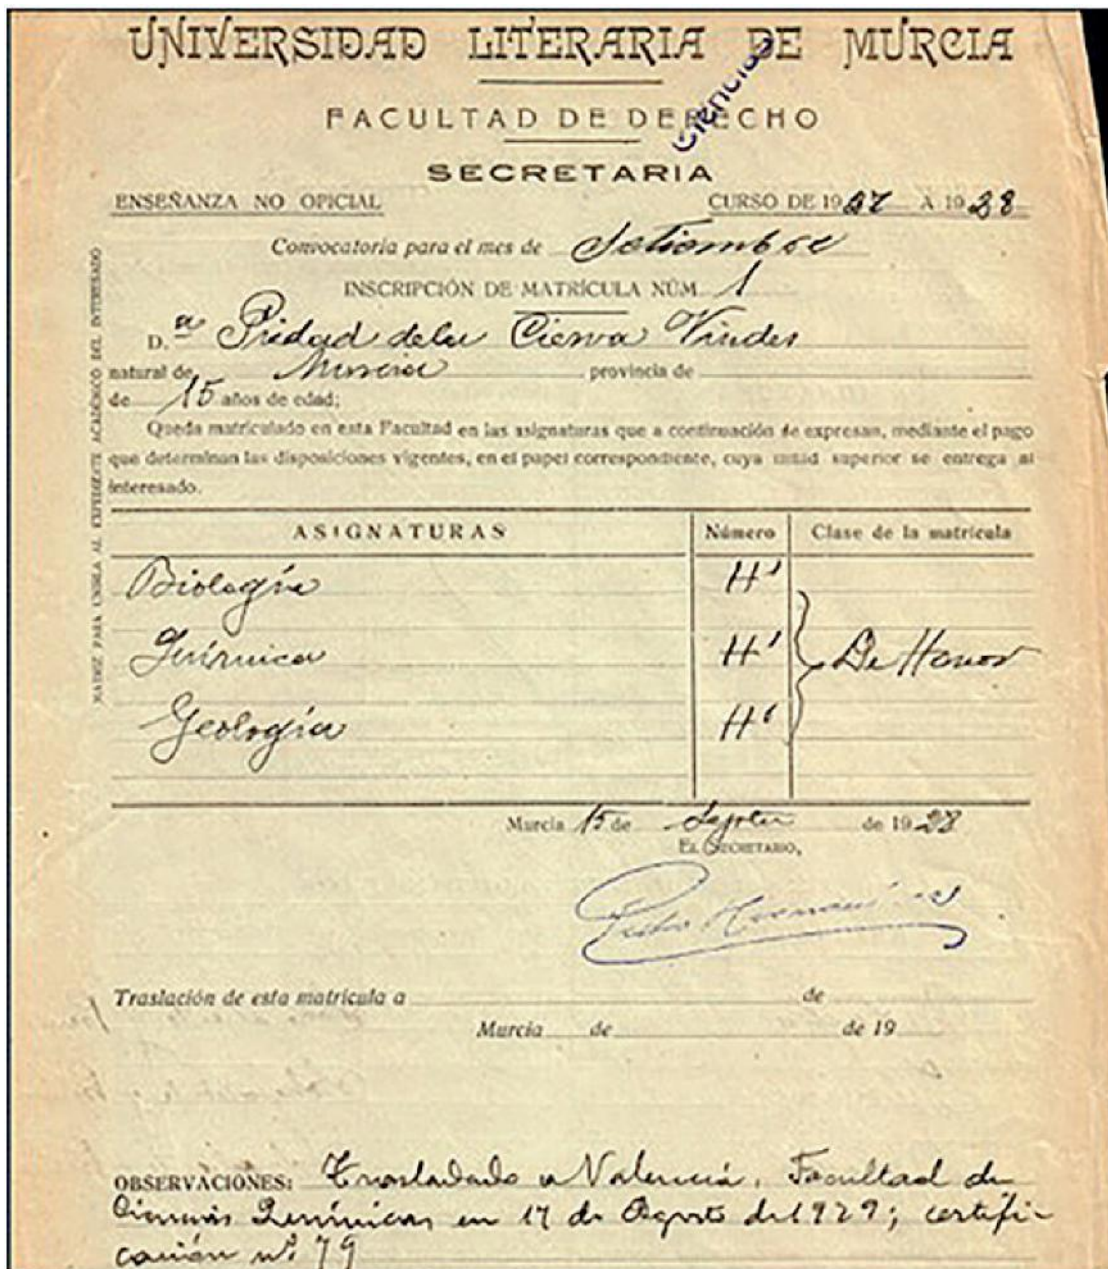 UNIVERSIDAD LITERARIA DE MURCIA
Ciencias
FACULTAD DE DERECHO
SECRETARIA
ENSEÑANZA NO OFICIAL CURSO DE 1927 A 1928
Convocatoria para el mes de Setiembre
INSCRIPCIÓN DE MATRÍCULA NÚM. 1
D.ª Piedad de la Cierva Viudes
natural de Murcia provincia de
de 15 años de edad;
Queda matriculado en esta Facultad en las asignaturas que a continuación se expresan, mediante el pago
que determinan las disposiciones vigentes, en el papel correspondiente, cuya mitad superior se entrega al
interesado.
MATRIZ PARA UNIRLA AL EXPEDIENTE ACADÉMICO DEL INTERESADO
ASIGNATURAS Número Clase de la matrícula
Biología H'
Química H' De Honor
Geología H'
Murcia 15 de Septbre de 1928
EL SECRETARIO,
Pedro Hernández
Traslación de esta matrícula a de
Murcia de de 19
OBSERVACIONES: Trasladada a Valencia, Facultad de
Ciencias Químicas en 17 de Agosto del 1929; certifi-
cación nº 79